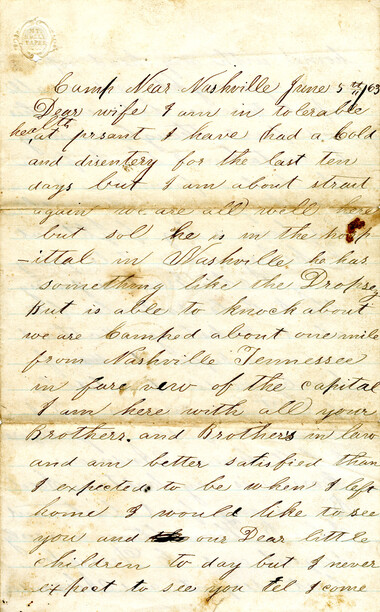 Camp Near Nashville June 5th /63
Dear wife I am in tolerable
health at prsant I have had a Cold
and disentery for the last ten
days but I am about strait
again we are all well here
but sol he is in the hosp
-ittal in Nashville he has
something like the Dropsey
But is able to knock about
we are Camped about one mile
from Nashville Tennessee
in fare vew of the capital
I am here with all your
Brothers. and Brothers in law
and am better satisfied than
I expected to be when I left
home I would like to see
you and our Dear little
children to day but I never
expect to see you tel I come